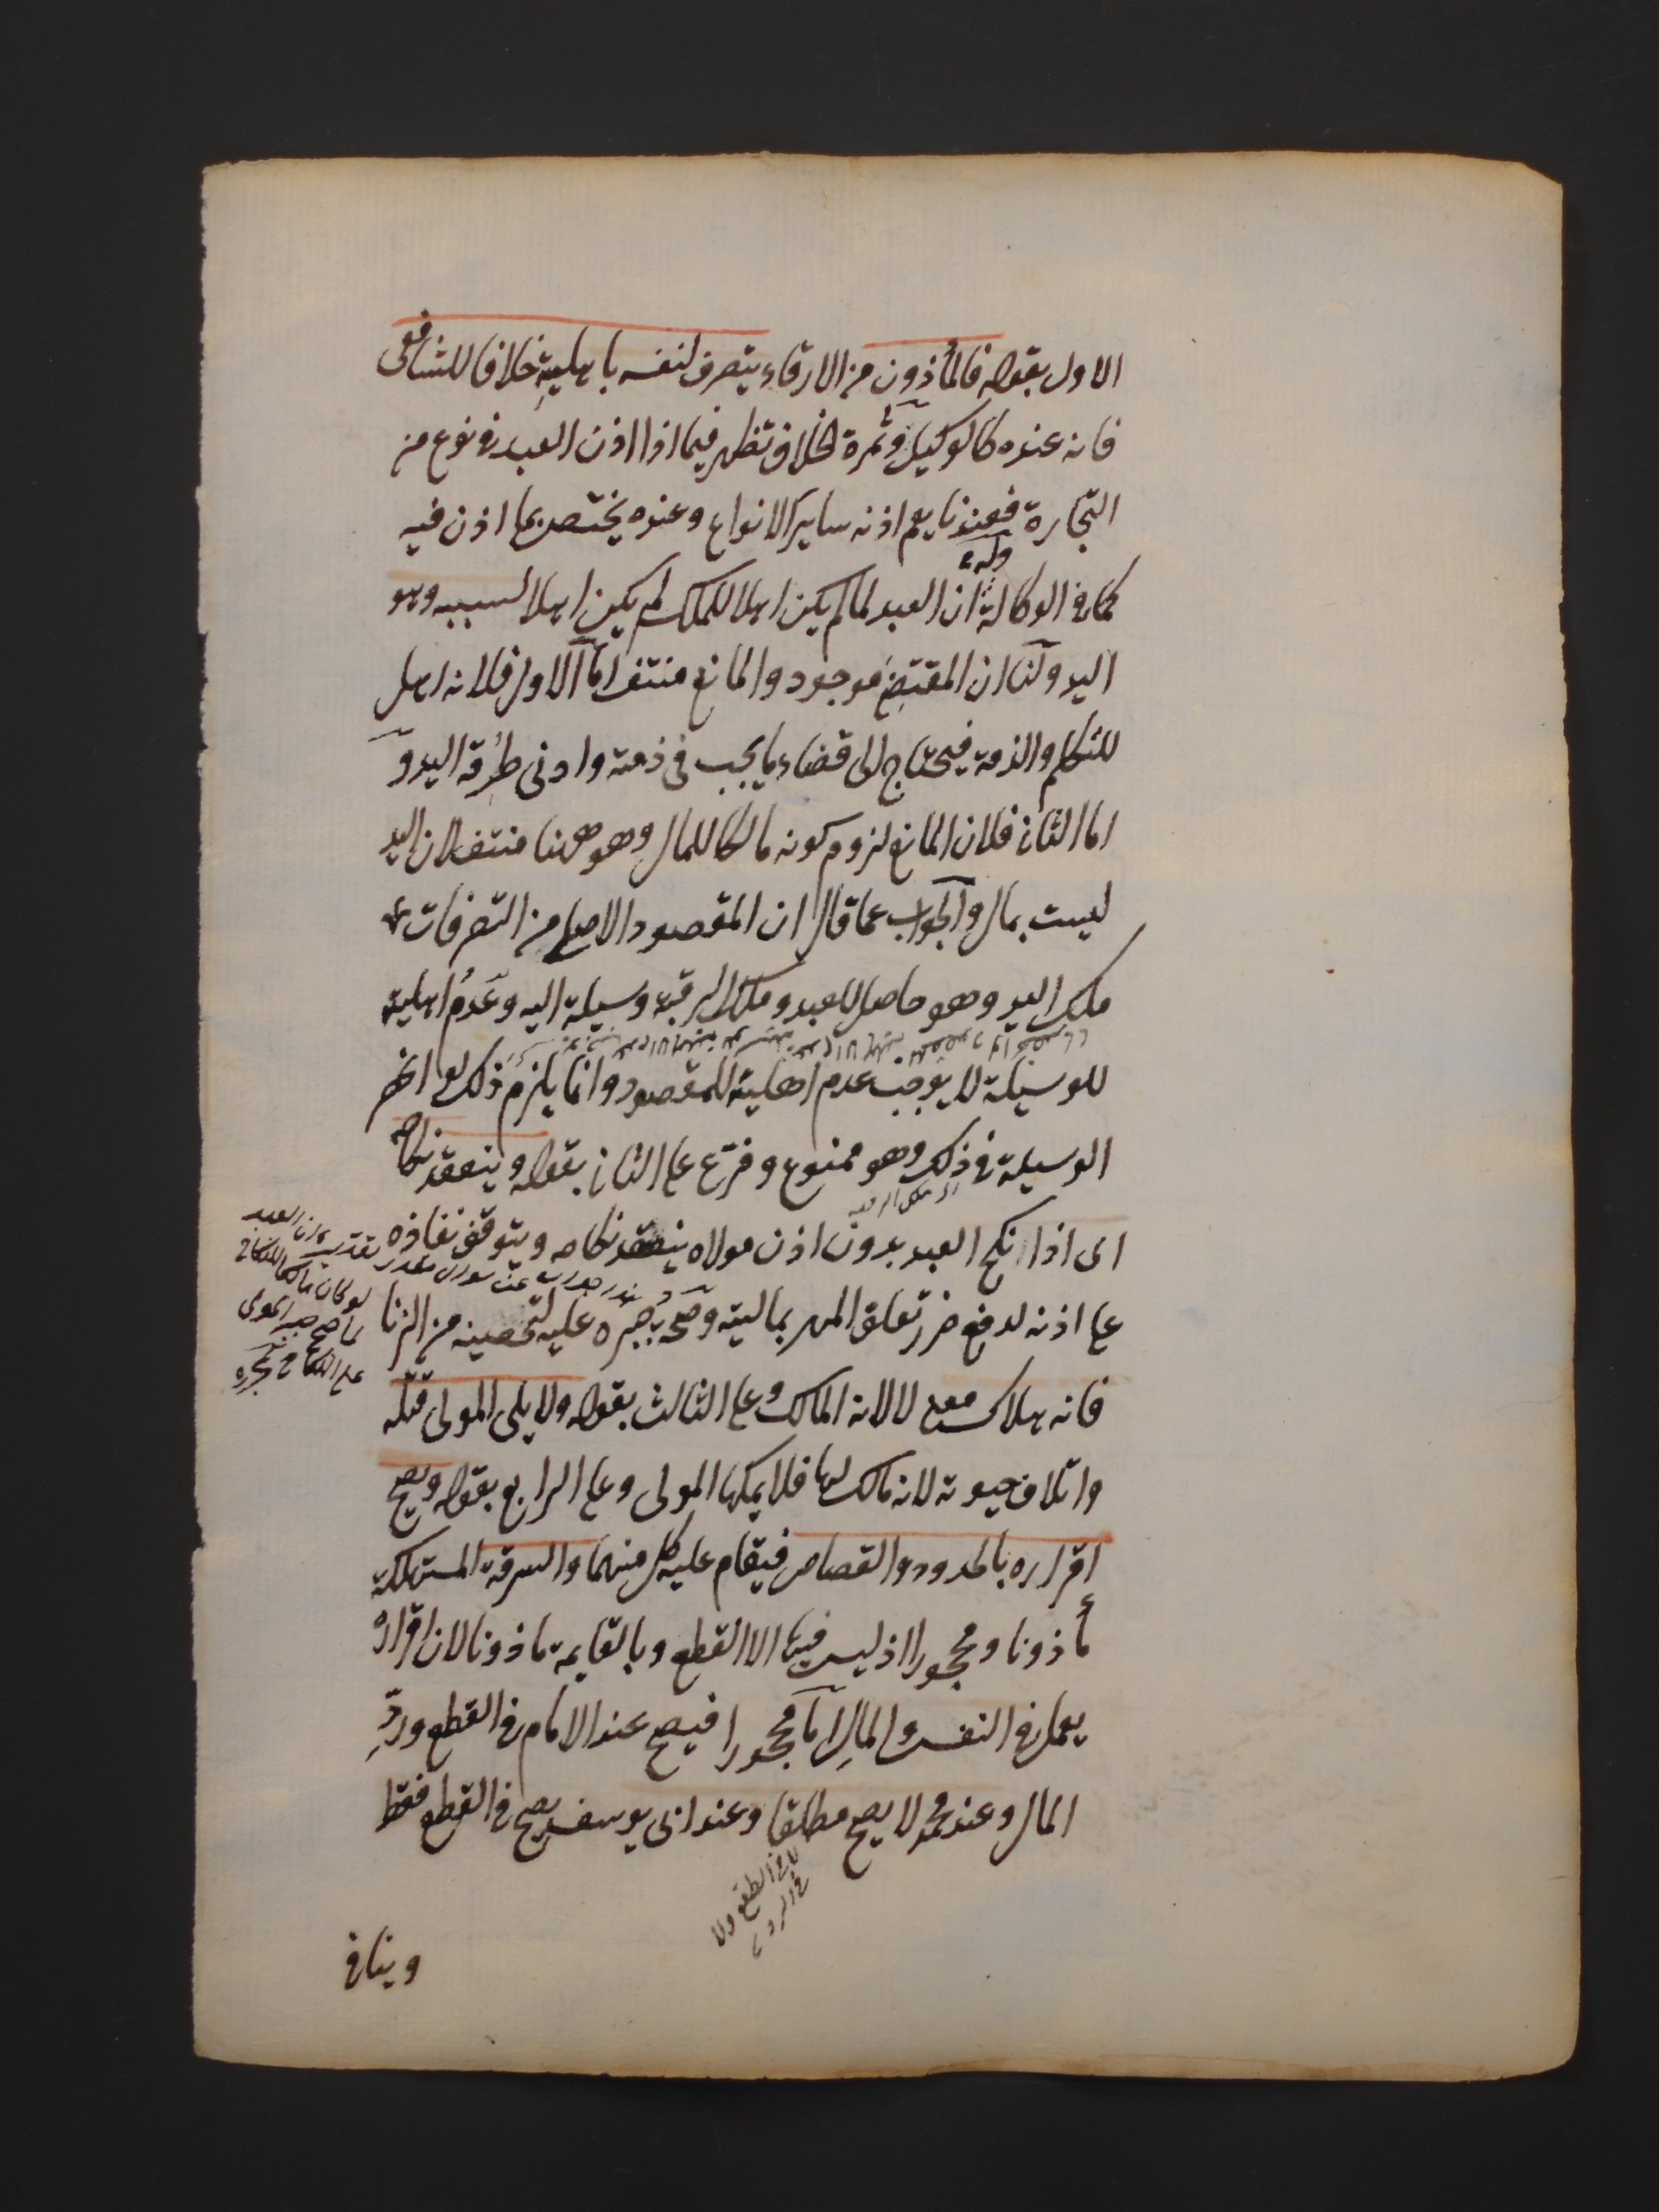 الاول بقوله فالمأذون من الارقاء يتصرف لنفسه باهليةٍ خلافا للشافعى
فانه عنده كالوكيل وثمرة الخلاف تظهر فيما اذا اذن العبد فى نوع من
التجارة فعندنا يعم اذنه ساير الانواع وعنده يختص بما اذن فيه
وله
كما فى الوكالة ان العبد لما لم يكن اهلا للملك لم يكن اهلا لسببه وهو
اليد ولنا ان المقتضِى موجود والمانع منتف اما الاول فلانه اهل
للتكلم والذمة فيحتاج الى قضاء ما يجب فى ذمته وادنى طرقه اليد و
اما الثانى فلان المانع لزوم كونه مالكا للمال وهو ههنا منتف لان اليد
ليست بمال والجواب عما قال ان المقصود الاصلى من التصرفات
ملك اليد وهو حاصل للعبد وملك الرقبة وسيلة اليه وعدمُ اهلية
للوسيلة لا يوجب عدم اهلية للمقصود وانما يلزم ذلك لو انحصر
الوسيلة فى ذلك وهو ممنوع وفرّع على الثانى بقوله وينعقد نكاحه
اى ملك الرقبة
اى اذا نكح العبد بدون اذن مولاه ينعقد نكاحه ويتوقف نفاذه
على اذنه لدفع ضرر تعلق المهر بماليته وصحّ جبره عليه لتحصينه من الزنا
هذا جواب عن سؤال مقدر تقديره ان العبد
لو كان مالكا للنكاح
لما صح جبر المولى
على النكاح
فانه هلاك معنى لا لانه المالك وعلى الثالث بقوله ولا يلى المولى قتلَه
واتلاف حيوته لانه مالك لها فلا يملكها المولى وعلى الرابع بقوله ويصح
اقراره بالحدود والقصاص فيقام عليه كل منهما والسرقة المستهلكة
مأذونا ومحجورا اذ ليس فيها الا القطع وبالقايمة ماذونا لان اقراره
يعمل فى النفس والمالِ اما محجورا فيصح عند الامام فى القطع وردِّ
المال وعند محمد لا يصح مطلقا وعند ابى يوسف يصح فى القطع فقط
لا فى القطع ولا
فى الرد
وينافى